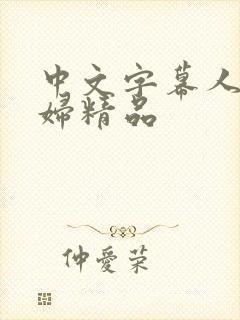 中文字幕人
婦精品
仲愛荣